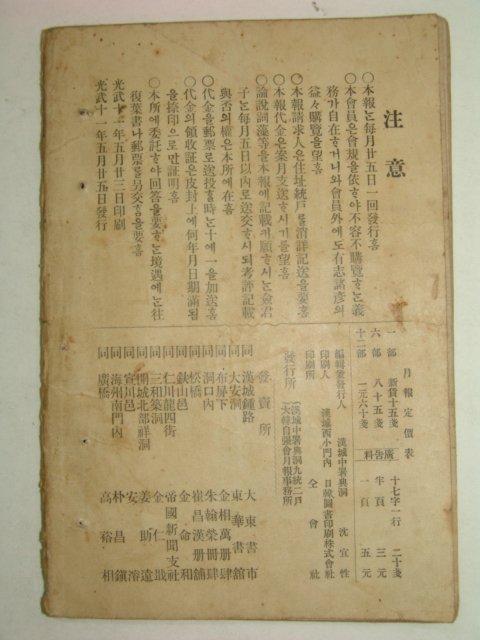 注意
○本報은每月廿五日一回發行홈
○本會員은會規을依ᄒᆞ야不容不購覽ᄒᆞᄂᆞᆫ義
務가自在ᄒᆞ거니와會員外에도有志諸彦의
益々購覽을望홈
○本報請求人은住址統戶를消詳記送을要홈
○本報代金은案月支送ᄒᆞ시기를望홈
○論說詞藻等을本報에記載키願ᄒᆞ시ᄂᆞᆫ僉君
子ᄂᆞᆫ每月五日以內로送交ᄒᆞ시되考評記載
與否의權은本所에在홈
○代金을郵票로送投ᄒᆞᆯ時ᄂᆞᆫ十에一을加送홈
○代金의領收証은皮封上에何年月日期滿됨
을捺印으로만証明홈
○本所에委託ᄒᆞ야回答을要ᄒᆞᄂᆞᆫ境遇에ᄂᆞᆫ往
復葉書나郵票를另交홈을要홈
光武十一年五月廿三日印刷
光武十一年五月廿五日發行
月報定價表
一部 新貨十五戔
六部 八十五戔
十二部 一元六十戔
廣告料
十七字一行 二十戔
半頁 三元
一頁 五元
編輯兼發行人 漢城中署典洞 沈宜性
印刷人 漢城西小門內 日韓圖書印刷株式會社
印刷所 仝會社
發行所 漢城中署典洞九統二戶
大韓自强會月報事務所
發賣所
漢城鍾路 大東書市
同 大安洞 東華書館
同 布屛下 金相萬冊肆
同 洞口內 朱翰榮冊肆
同 松橋 崔昌漢冊舖
同 鐵山邑 金命和
同 仁川龍四街 帝國新聞支社
同 三和築洞 金仁
同 開城北部祥洞 姜助遠
同 宣川邑 安濬
同 海州南門內 朴昌鎭
同 廣橋 高裕相